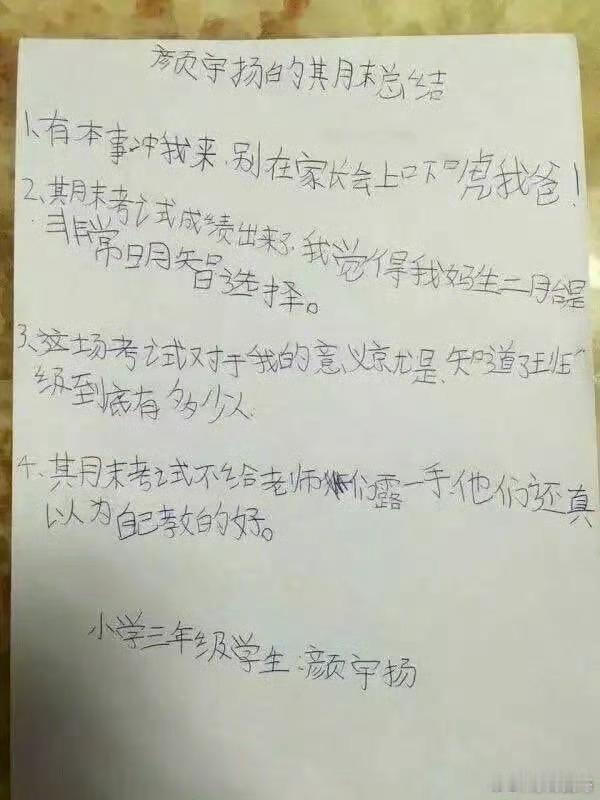 颜宇扬的期末总结
1、有本事冲我来,别在家长会上吓唬我爸!
2、期末考试成绩出来了,我觉得我妈生二胎是
非常明智选择。
3、这场考试对于我的意义就是,知道了班
级到底有多少人.
4、期末考试不给老师们露一手,他们还真
以为自己教的好。
小学三年级学生:颜宇扬